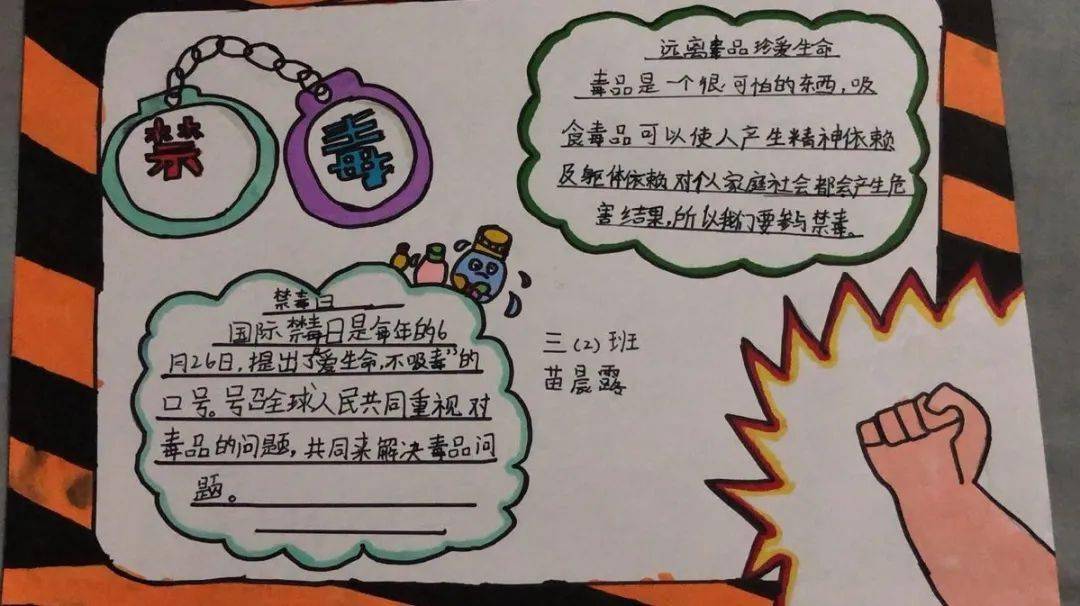 禁 毒
远离毒品珍爱生命
毒品是一个很可怕的东西，吸
食毒品可以使人产生精神依赖
及躯体依赖对个人家庭社会都会产生危
害结果，所以我们要参与禁毒。
禁毒日
国际禁毒日是每年的6
月26日，提出了“爱生命，不吸毒”的
口号。号召全球人民共同重视对
毒品的问题，共同来解决毒品问
题。
三（2）班
苗晨露